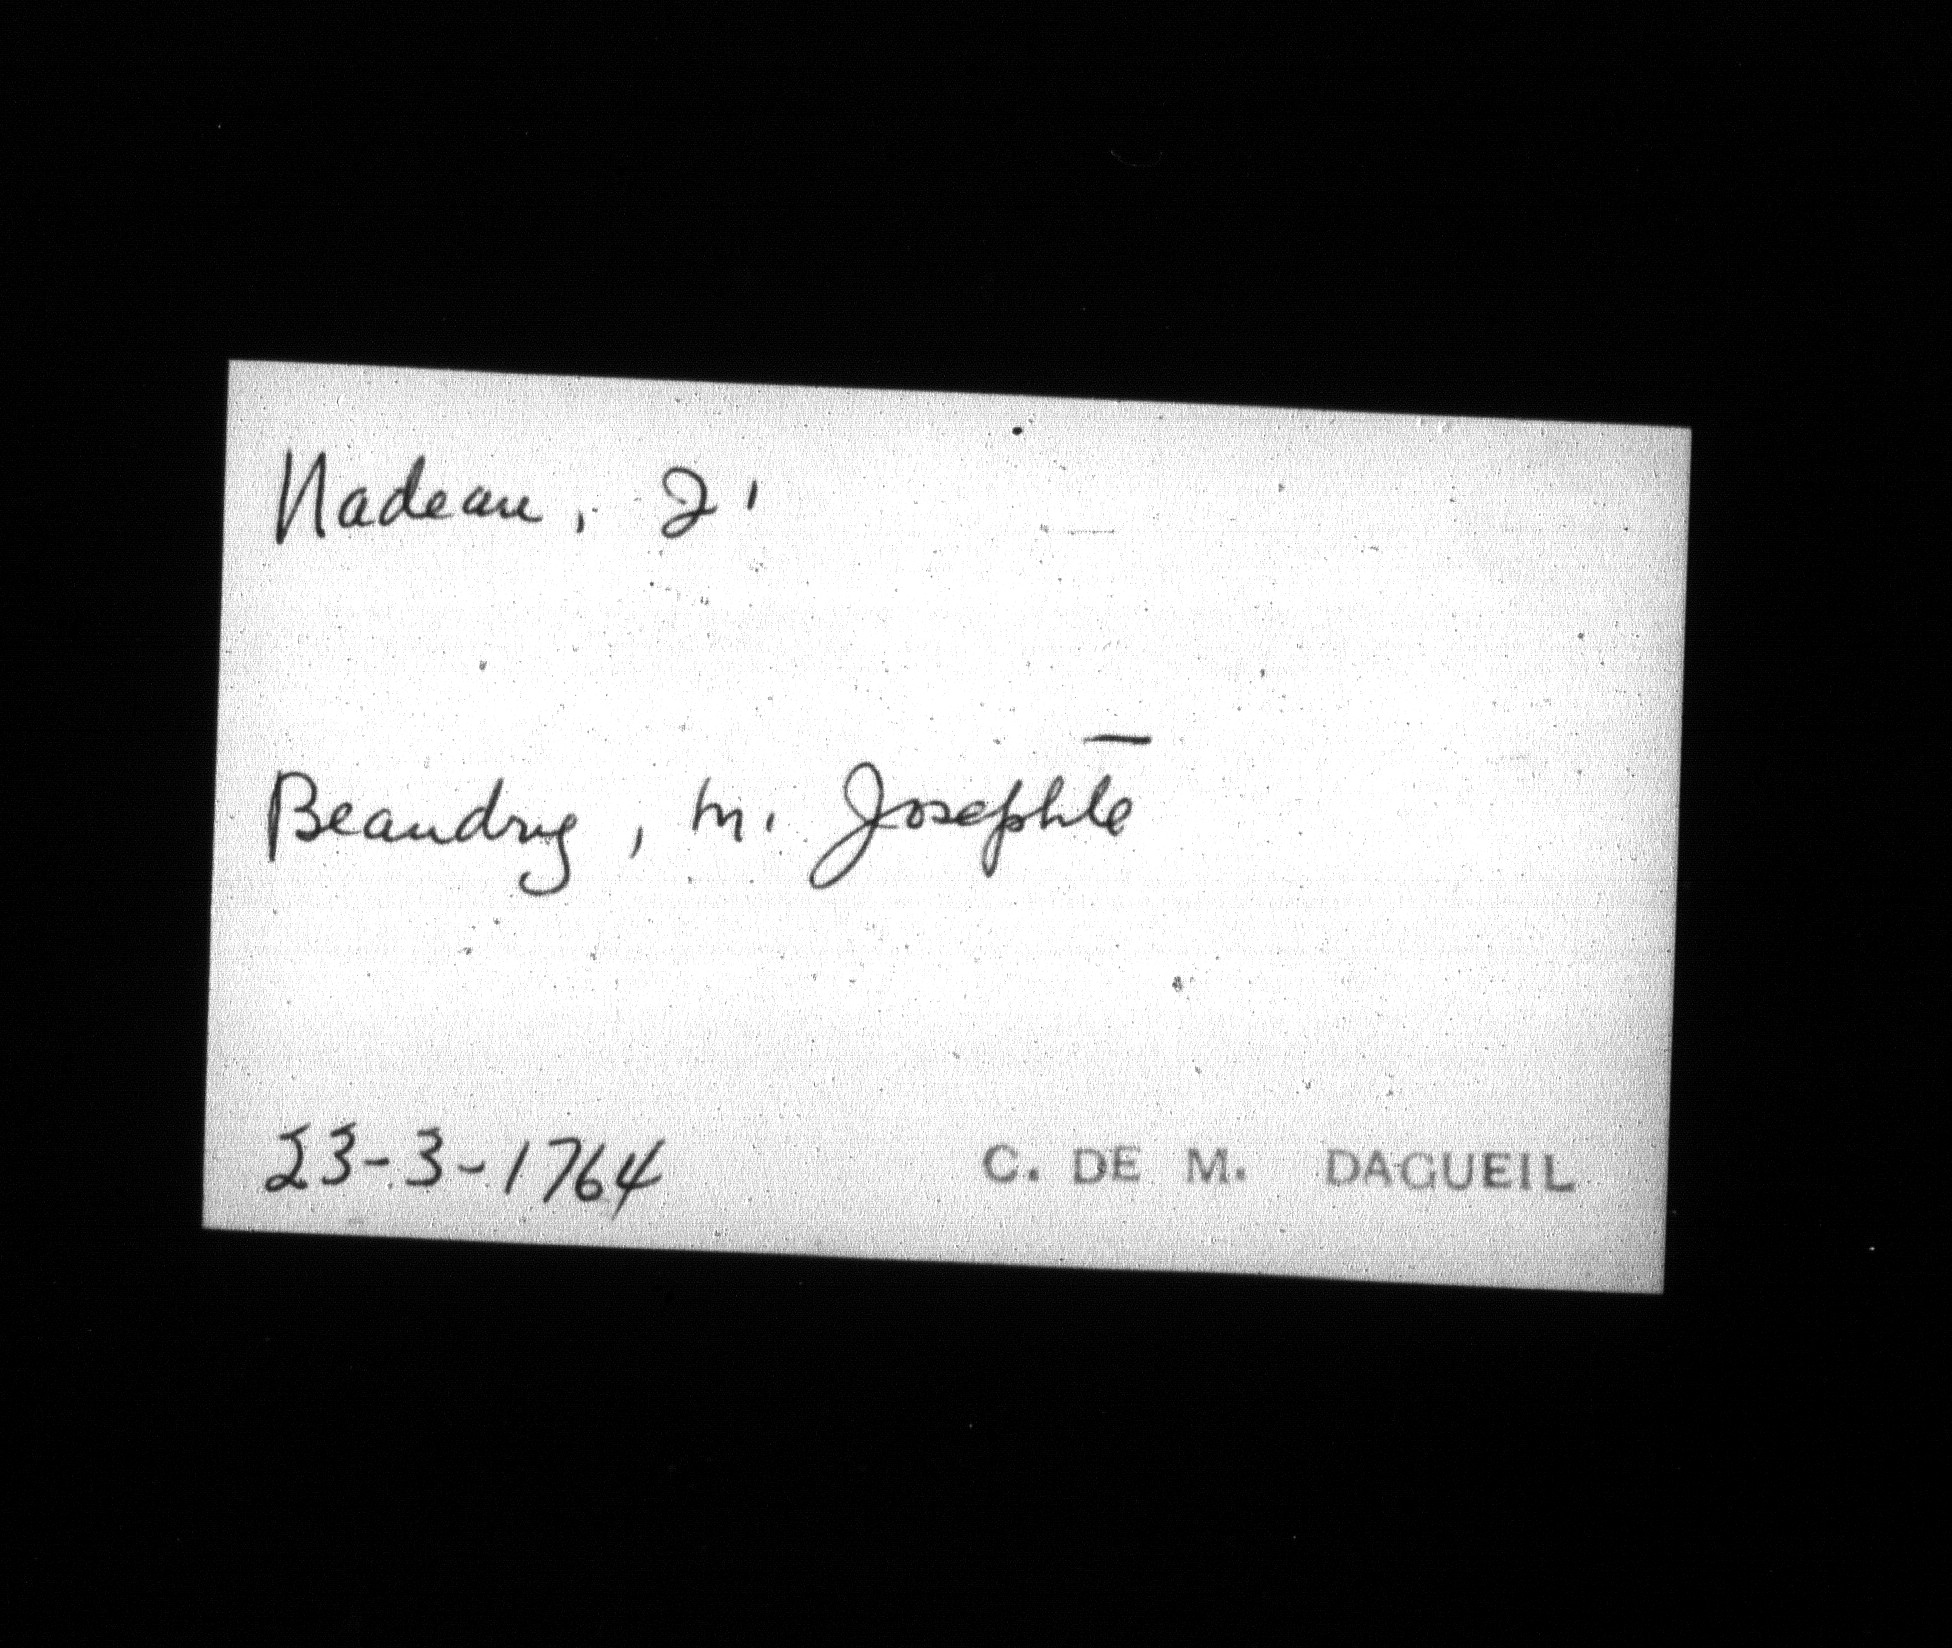 Nadeau, J'
Beaudry, M. Josephte
23-3-1764 C. DE M. DAGUEIL